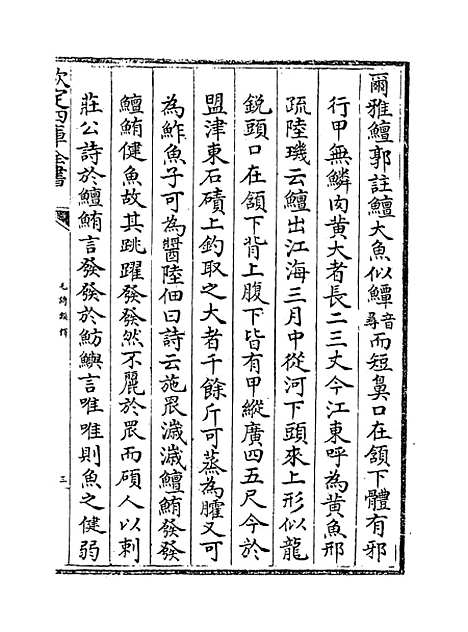 爾雅鱣郭註鱣大魚似鱏音尋而短鼻口在頷下體有邪
行甲無鱗肉黄大者長二三丈今江東呼為黄魚邢
疏陸璣云鱣出江海三月中從河下頭來上形似龍
鋭頭口在頷下背上腹下皆有甲縱廣四五尺今於
盟津東石磧上釣取之大者千餘斤可蒸為臛又可
為鮓魚子可為醬陸佃曰詩云施罛濊濊鱣鮪發發
鱣鮪健魚故其跳躍發發然不麗於罛而碩人以刺
莊公詩於鱣鮪言發發於魴鱮言唯唯則魚之健弱
欽定四庫全書
毛詩類釋
三